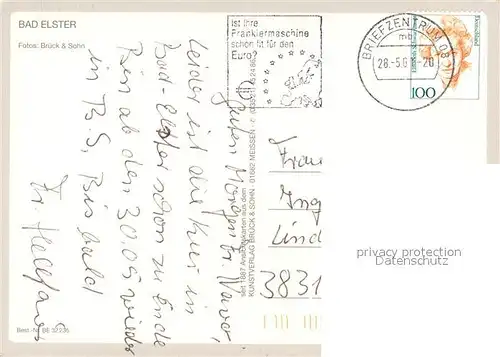 BAD ELSTER
Fotos: Brück & Sohn
Ist Ihre
Frankiermaschine
schon fit für den
Euro?
BRIEFZENTRUM 08
mb
28.-5.0
-20
Deutschland
100
Guten Morgen Fr.
leider ist die Kur in
Bad-Elster schon zu Ende
Bin ab den 30.05 wieder
in B.S, Bis bald
Fr.
seit 1887 Ansichtskarten aus dem
KUNSTVERLAG BRÜCK & SOHN · 01662 MEISSEN
Frau
Ing
Lind
3831
Best.-Nr. BE 32236
privacy protection
Datenschutz